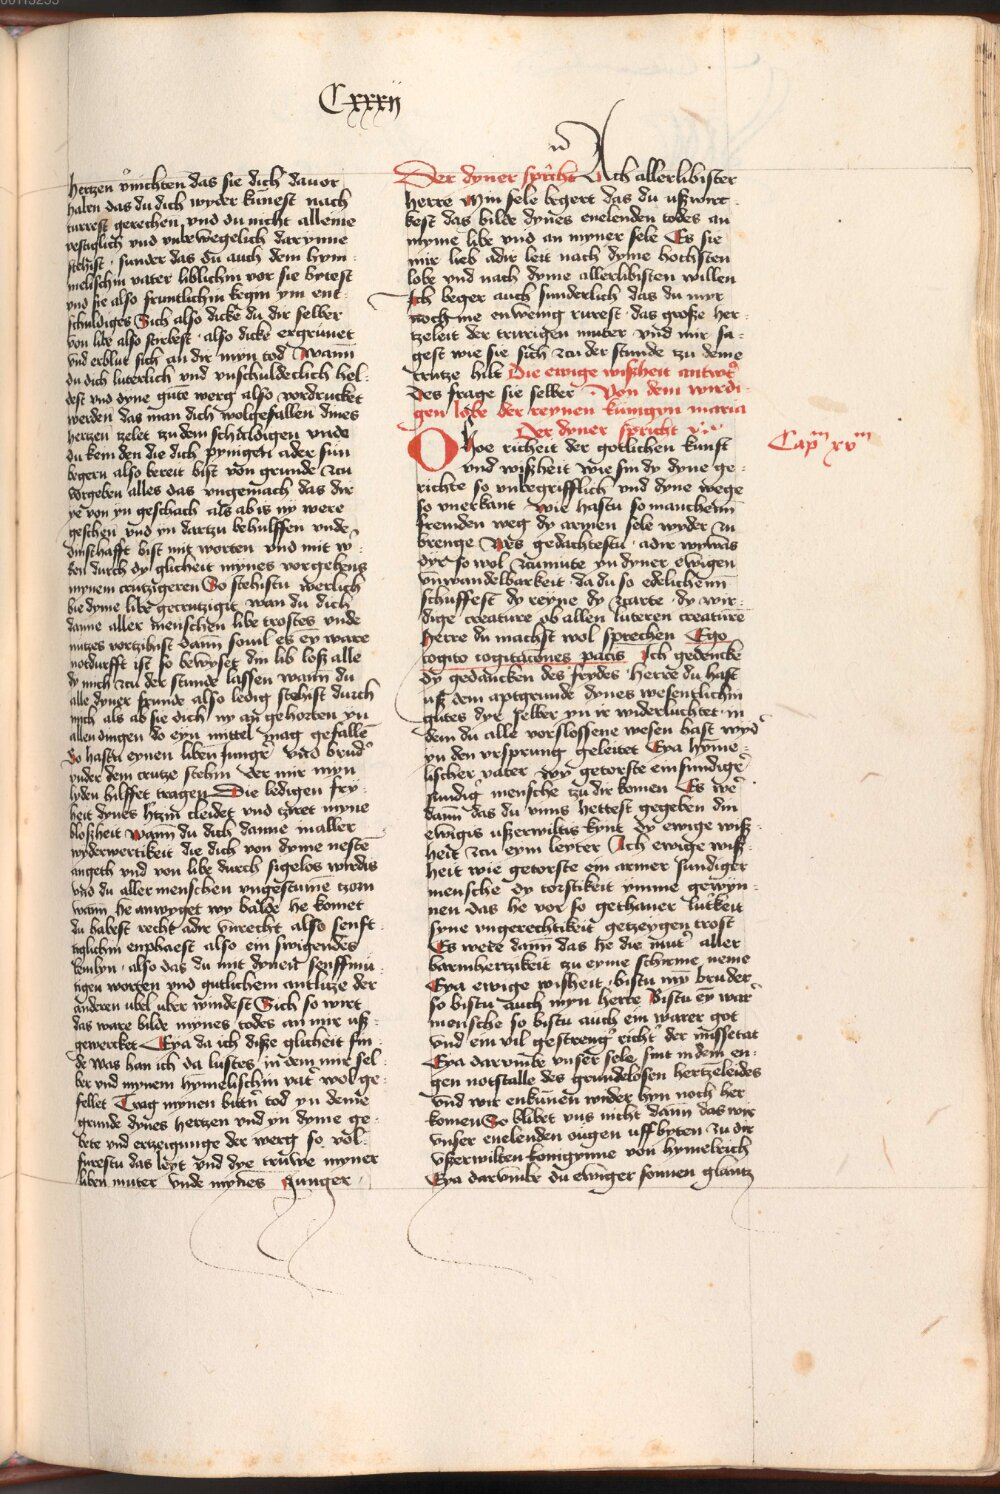 Cxxxij
hertzen vnichten das sie dich davor
haben das du dich wyder kunest nach
turrest gerechen vnd du nicht alleine
vestiglich vnd vnbewegelich darynne
stehist · sunder das du auch dem hym-
melischin vater liblichin vor sie bytest
vnd sie also fruntlichin kegin ym ent-
schuldiges Sich also dicke du dir selber
von libe also stirbest · also dicke ergrunet
vnd erblut sich an dir myn tod Wann
du dich luterlich vnd vnschuldeclich hel-
dest vnd dyne gute werg also vordrucket
werden das man dich wolgefallen dines
hertzen zelet zu dem schuldigen vnde
du kem den die dich pynigen ader sun
begern also bereit bist von grunde zcu
vorgeben alles das vngemach das dir
ye von yn geschach als ab is ny were
geschen vnd yn dartzu behulffen vnde
dinschafft bist mit worten vnd mit w-
ken durch dy glicheit mynes vorgebens
mynem crutzigeren So stehistu werlich
bie dyme libe gecrutzigit wan du dich
danne aller menschen libe trostes vnde
nutzes vortzihist dann souil es ey ware
notdurfft ist so bewyset din lib loß alle
dy mich zcu der stunde lassen wann du
alle dyner frunde also ledig stehist durch
mich als ab sie dich ny an gehorten yn
allen dingen do eyn mittel mag gefallen
So hastu eynen liben Junger vnd bruder
vnder dem crutze stehin der mir myn
lyden hilffet tragen Die ledigen fry-
heit dynes htzin cleidet vnd tziret myne
bloßheit wann du dich danne in aller
wyderwertikeit die dich von dyme nesten
angeth vnd von libe durch sigelos wirdis
vnd du aller menschen vngestume tzorn
wann he anwyget wy balde he komet
du habest recht adir vnrecht also senft-
iglichin enphaest also ein swigendes
lemlyn · also das du mit dynen senffmu-
tigen worten vnd gutlichem antlitze der
anderen ubel uber windest Sich so wirt
das ware bilde mynes todes an mir uß-
gewercket Eya da ich diße glicheit fin-
de was han ich da lustes in dem mir sel-
ber vnd mynem hymelischin vater wol ge-
fellet Trag mynen bittern tod yn deme
grunde dynes hertzen vnd yn dyme ge-
bete vnd ertzeigunge der werg so vol-
furestu das leyt vnd dye truwe myner
liben muter vnde mynes Junger
Der dyner spricht Ach allerlibister
herre Min sele begert das du ußwir-
kest das bilde dynes enelenden todes an
myme libe vnd an myner sele Es sie
mir lieb adir leit nach dyme hochsten
lobe vnd nach dyme allerlibisten willen
Ich beger auch sunderlich das du myr
noch me enwenig rurest · das große her-
tzeleit der trurigen muter vnd mir sa-
gest wie sie sich zcu der stunde tzu deme
crutze hilt Die ewige wißheit antwert
Des frage sie selber · Von dem wirdi-
gen lobe der reynen kunigyn maria
Der dyner spricht
Cap^m xv^m
O hoe richeit der gotlichen kunst
vnd wißheit wie sin dy dyne ge-
richte so vnbegrifflich vnd dyne wege
so vnerkant Wie hastu so manchenn
fremden weg dy armen sele wyder zu
brenge Wes gedachtestu · adir wy was
dyr so wol zcumute yn dyner ewigen
vnwandelbarkeit da du so edelichenn
schuffest dy reyne dy zcarte · dy wir-
dige creature ob allen luteren creaturen
Herre du machst wol sprechen Ego
cogito cogitaciones pacis Ich gedencke
dy gedancken des frydes · Herre du hast
uß dem aptgrunde dynes wesentlichin
gutes dyr selber yn ir widerluchtet · in
dem du alle vorslossene wesen hast wyder
yn den ursprung geleitet Eya hyme-
lischer vater wy getorste ein sundiger
sundig mensche tzu dir komen Es were
dann das du vnns hettest gegeben din
ewigis ußerwiltis kynt dy ewige wiß-
heit zcu eym leyter Ach ewige wiß-
heit wie getorste ein armer sundiger
mensche dy torstikeit ymme gewyn-
nen das he vor so gethaner lutkeit
syne vngerechtikeit getzeygen trost
Es were dann das he die muter aller
barmhertzikeit zu eyme schirme neme
Eya ewige wisheit · bistu my bruder
so bistu auch myn herre Bistu ey war
mensche so bistu auch ein warer got
vnd ein vil gestrenger richter der missetat
Eya darvmbe vnser sele sint in dem en-
gen notstalle des grundelosen hertzeleides
vnd wir enkunen wider hyn noch her
komen So blibet vns nicht dann das wir
vnser enelenden ougen uff byten zu dir
vßerwilten konigynne von hymelrich
Eya darvmbe du ewiger sonnen glantz